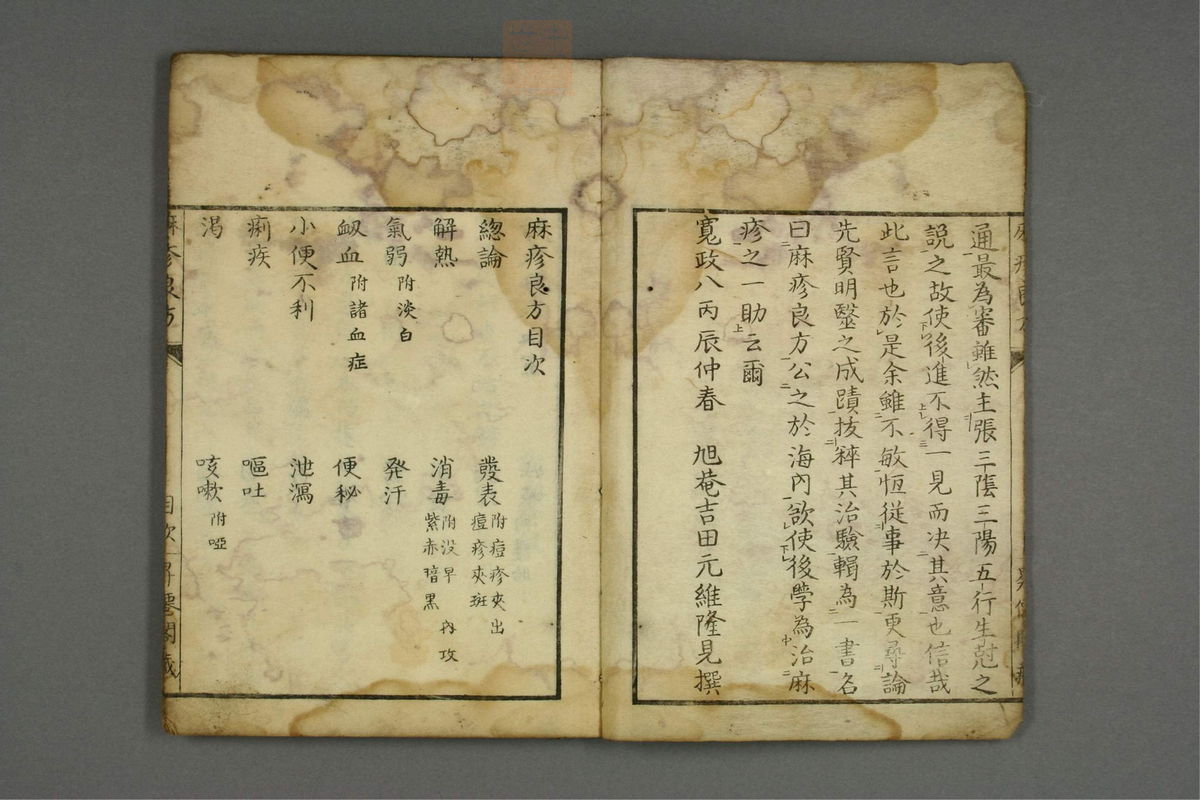 通最為審雖然主張三陰三陽五行生尅之
説之故使後進不得一見而决其意也信哉
此言也於是余雖不敏恒従事於斯更尋論
先賢明毉之成蹟抜稡其治驗輯為一書名
曰麻疹良方公之於海内欲使後學為治麻
疹之一助云爾
寛政八丙辰仲春 旭菴吉田元維隆見撰
麻疹良方目次
總論 發表附痘疹夾出痘疹夾斑
解熱 消毒附没早内攻紫赤瘖黒
氣弱附淡白 発汗
衂血附諸血症 便秘
小便不利 泄瀉
痢疾 嘔吐
渇 咳嗽附啞
麻疹良方 目次